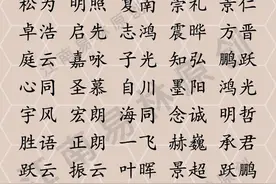 松为 明照 夏南 崇礼 景仁
卓浩 启先 志鸿 震晔 方晋
庭云 嘉咏 子光 知弘 鹏跃
心同 圣慕 自川 墨阳 鸿光
宇风 宏朗 海同 念诚 明哲
胜语 正朗 一飞 赫巍 承君
跃云 振云 叶晖 景超 跃鹏